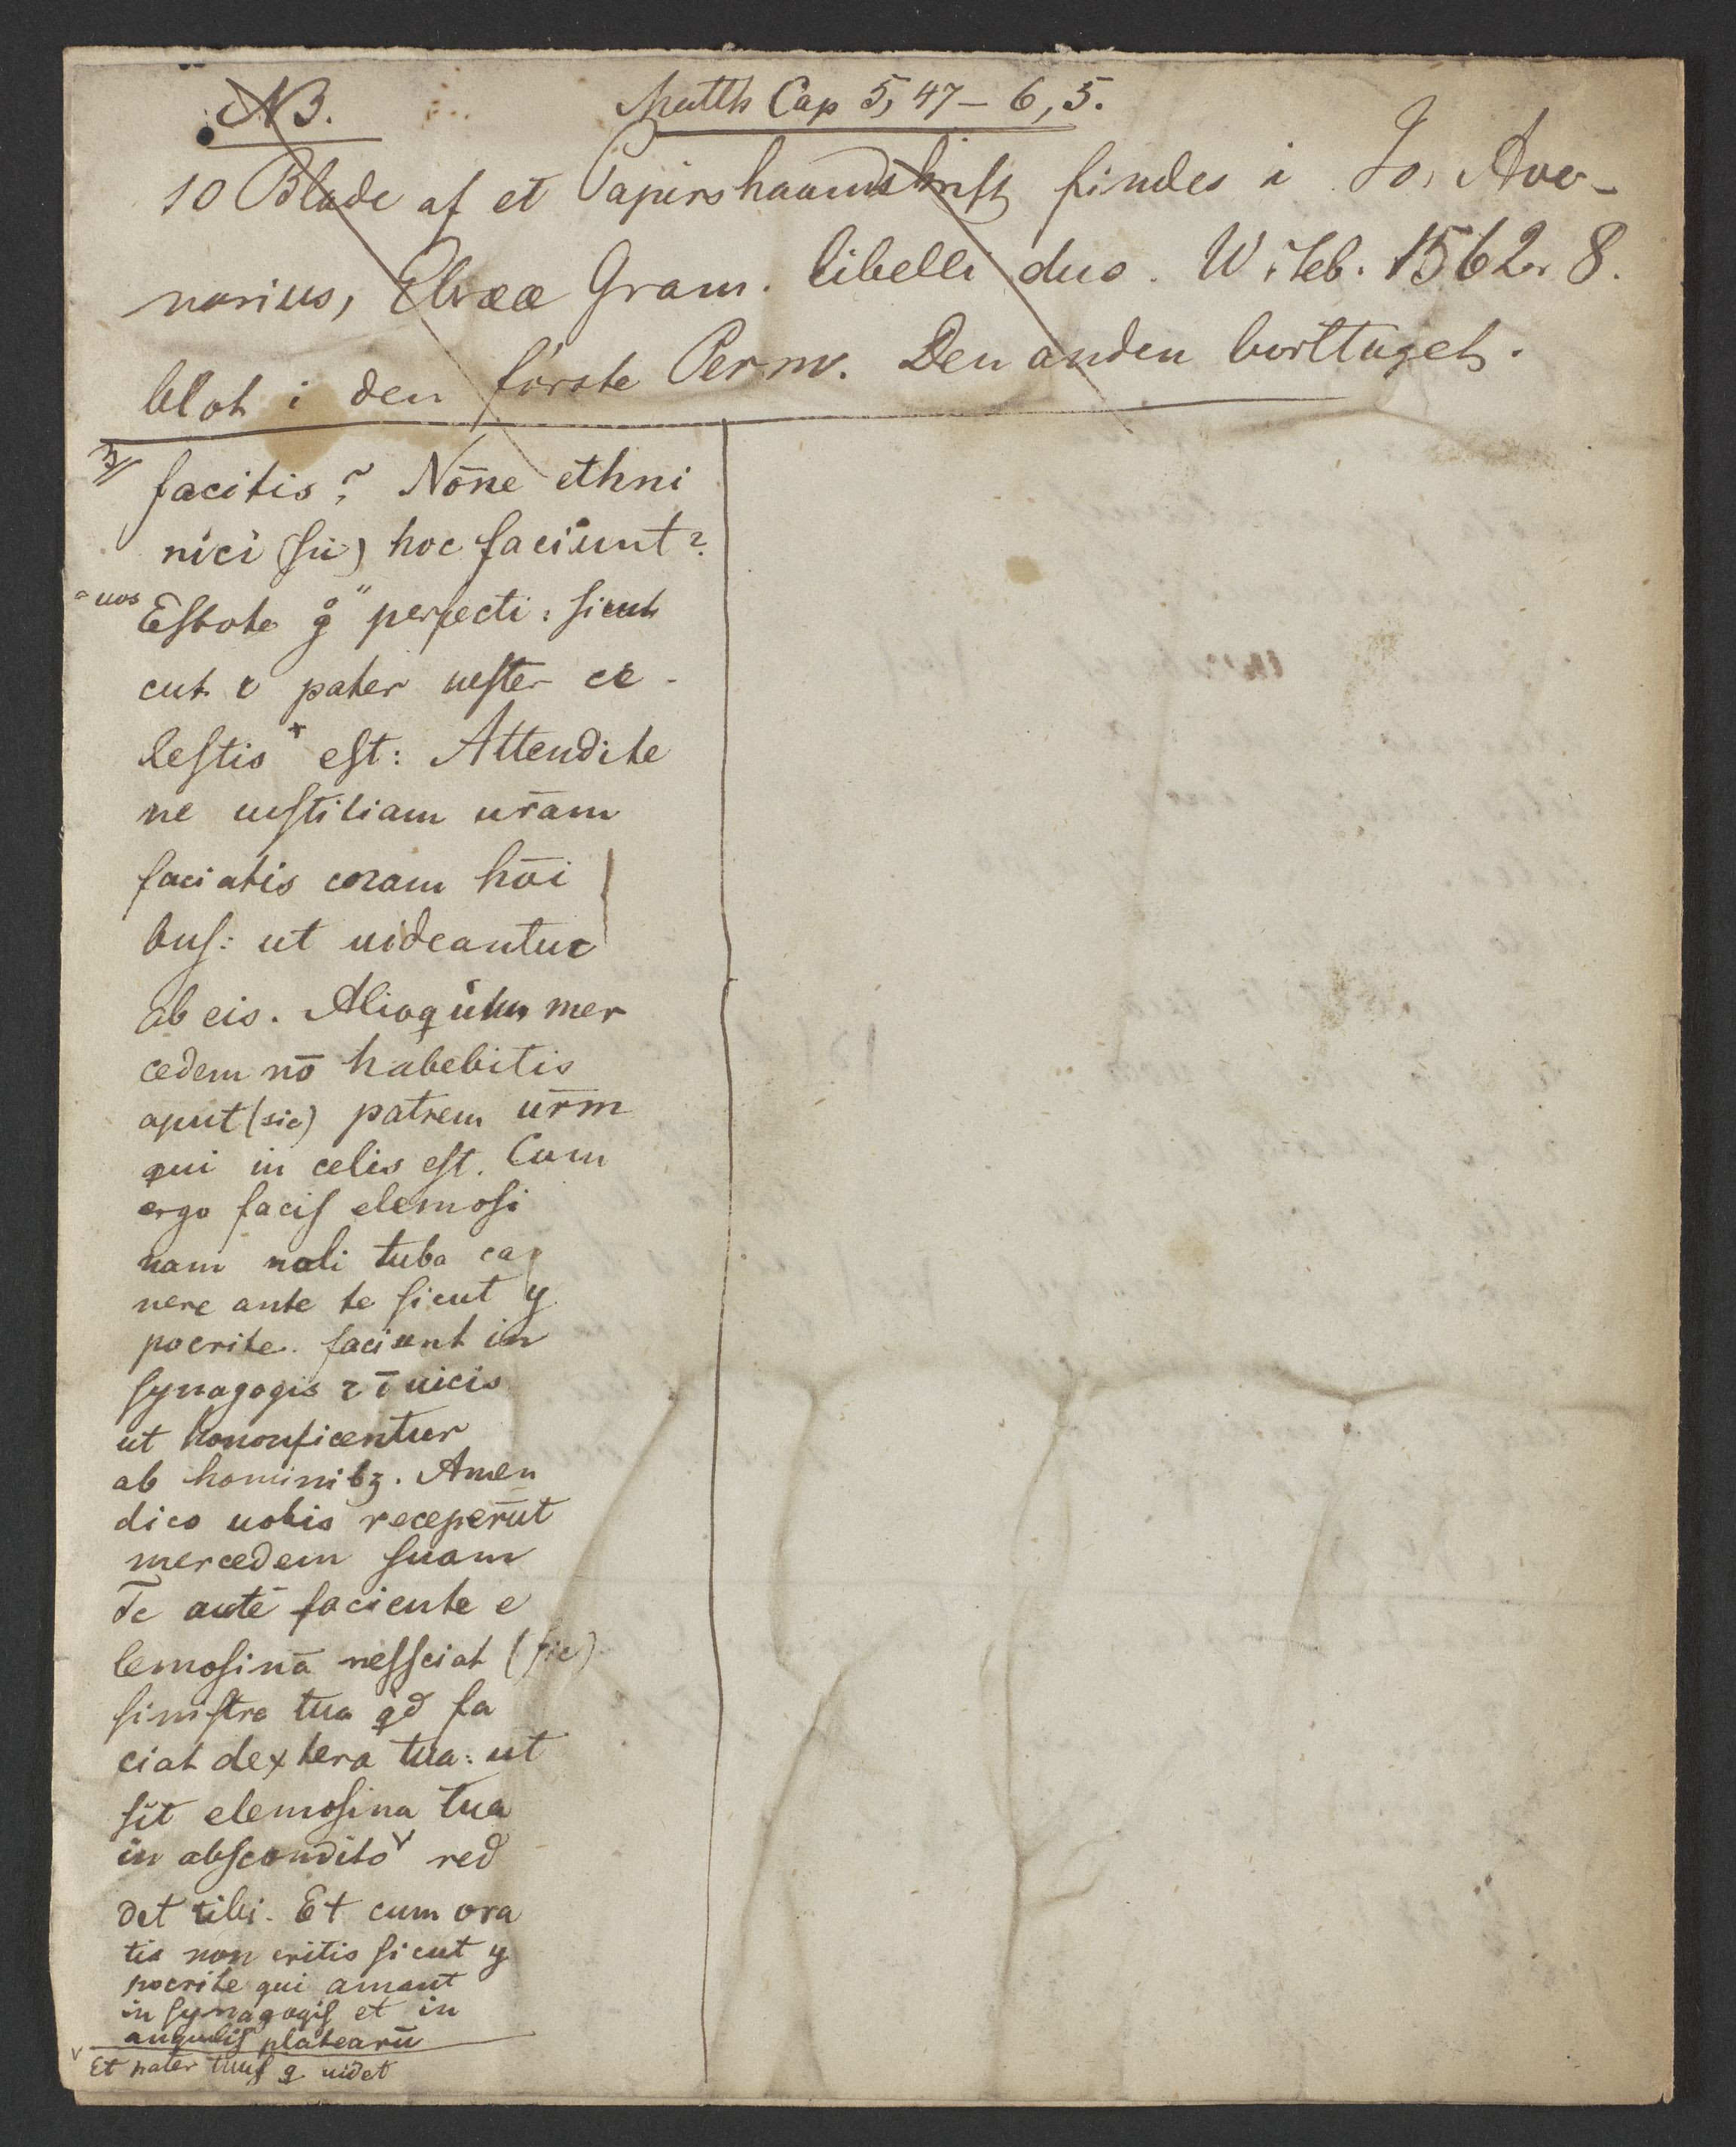 NB. Matth Cap 5, 47 – 6, 5.
10 Blade af et Papirshaandskrift findes i Jo. Ave-
narius, Ebrææ Gram. libelli duo. Witeb. 1562. 8.
blot i den förste Perm. Den anden borttaget.
facitis? Nōne ethni
nici (sic) hoc faciunt?
"uos Eſtote g̊ " perfecti: ſicut
cut & pater ueſter ce-
leſtis + eſt: Attendite
ne iuſtitiam ur̄am
faciatis coram hōi
buſ: ut uideamtur
ab eis. Alioquin mer
cedem nō habebitis
aput (sic) patrem ur̄m
qui in celis eſt. Cum
ergo faciſ elemoſi
nam noli tuba ca
nere ante te ſicut y
pocrite faciunt in
ſynagogis ⁊ ī uicis
ut honorificentur
ab hominibꝫ. Amen
dico uobis receperūt
mercedem ſuam
Te autē faciente e
lemoſinā neſſciat (ſic)
ſiniſtra tua qd fa
ciat dextera tua: ut
ſit elemoſina tua
in abſcondito v red
det tibi. Et cum ora
tis non eritis ſicut y
pocrite qui amant
in ſynagogiſ et in
anguliſ platearū
v Et pater tuuſ q uidet